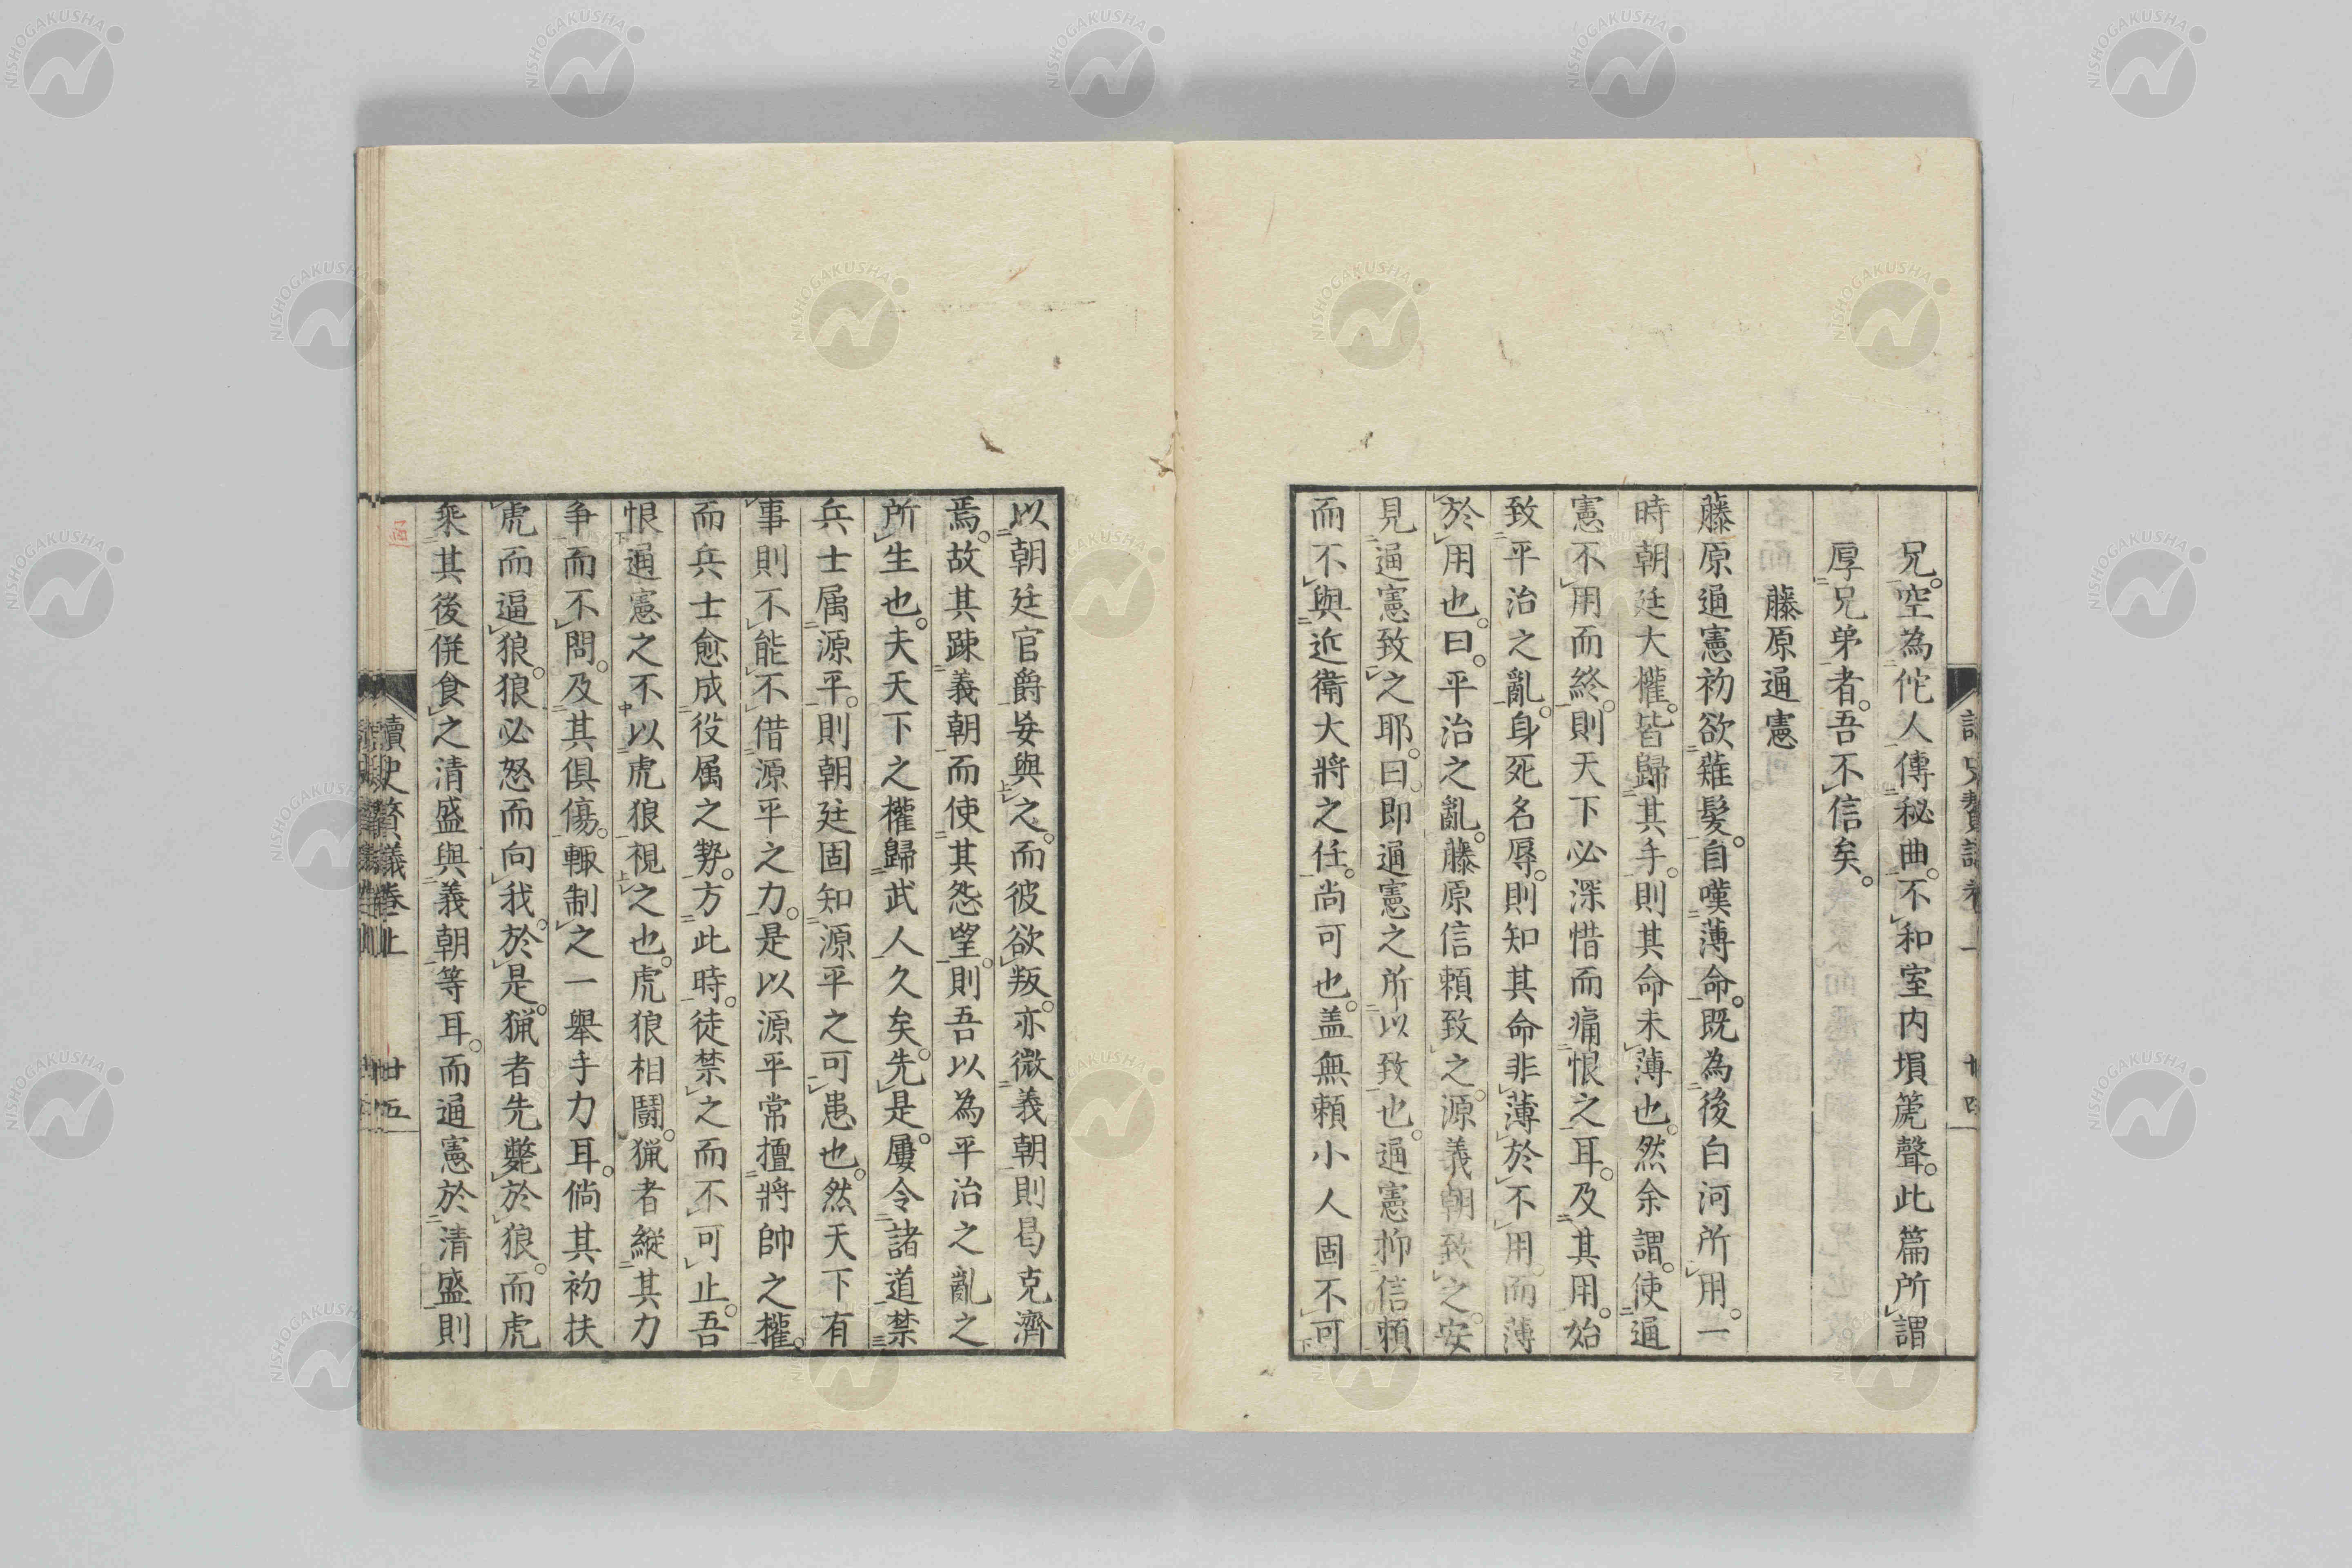 兄。空為佗人傳秘曲。不和室内塤箎聲。此篇所謂
厚兄弟者。吾不信矣。
藤原通憲
藤原通憲初欲薙髮。自嘆薄命。既為後白河所用。一
時朝廷大權。皆歸其手。則其命未薄也。然余謂。使通
憲不用而終。則天下必深惜而痛恨之耳。及其用。始
致平治之亂。身死名辱。則知其命非薄於不用。而薄
於用也。曰。平治之亂。藤原信頼致之。源義朝致之。安
見通憲致之耶。曰。即通憲之所以致也。通憲抑信頼
而不與近衛大將之任。尚可也。盖無頼小人固不可
以朝廷官爵妄與之。而彼欲叛。亦微義朝則曷克濟
焉。故其踈義朝而使其怨望。則吾以為平治之亂之
所生也。夫天下之權歸武人久矣。先是。屢令諸道禁
兵士属源平。則朝廷固知源平之可患也。然天下有
事則不能不借源平之力。是以源平常擅將帥之權。
而兵士愈成役属之勢。方此時。徒禁之而不可止。吾
恨通憲之不以虎狼視之也。虎狼相鬪。猟者縱其力
争而不問。及其俱傷。輙制之一舉手力耳。倘其初扶
虎而逼狼。狼必怒而向我。於是。猟者先斃於狼。而虎
乘其後併食之清盛與義朝等耳。而通憲於清盛則
讀史贅議卷上
廿五
NISHOGAKUSHA